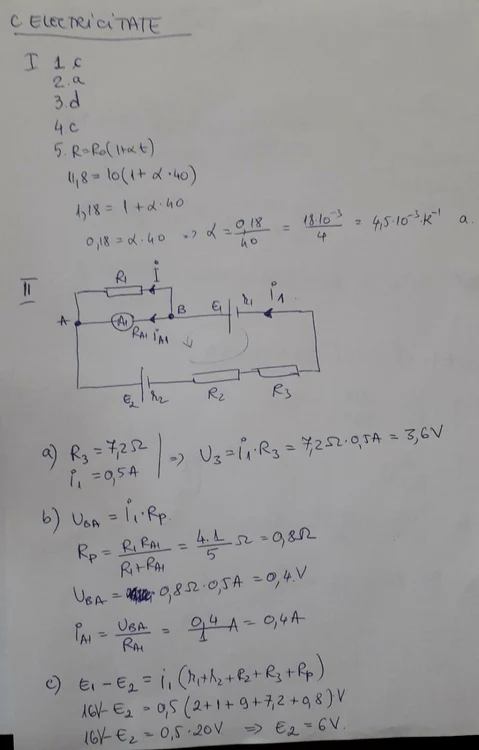 C ELECTRICITATE
I 1. c
2. a
3. d
4. c
5. R=R0(1+αt)
11,8=10(1+α·40)
1,18=1+α·40
0,18=α·40 => α=0,18/40 = 18·10⁻³/4 = 4,5·10⁻³·K⁻¹ a.
II
R1 i
A A1 B E1 r1 i1
RA1 iA1
E2 r2 R2 R3
a) R3=7,2Ω
i1=0,5A => U3=i1·R3=7,2Ω·0,5A=3,6V
b) UBA=i1·Rp.
Rp=R1RA1/R1+RA1=4.1/5 Ω=0,8Ω
UBA=0,8Ω·0,5A=0,4.V
iA1=UBA/RA1=0,4/1 A=0,4A
c) E1-E2=i1(r1+r2+R2+R3+Rp)
16V-E2=0,5(2+1+9+7,2+0,8)V
16V-E2=0,5·20V => E2=6V.